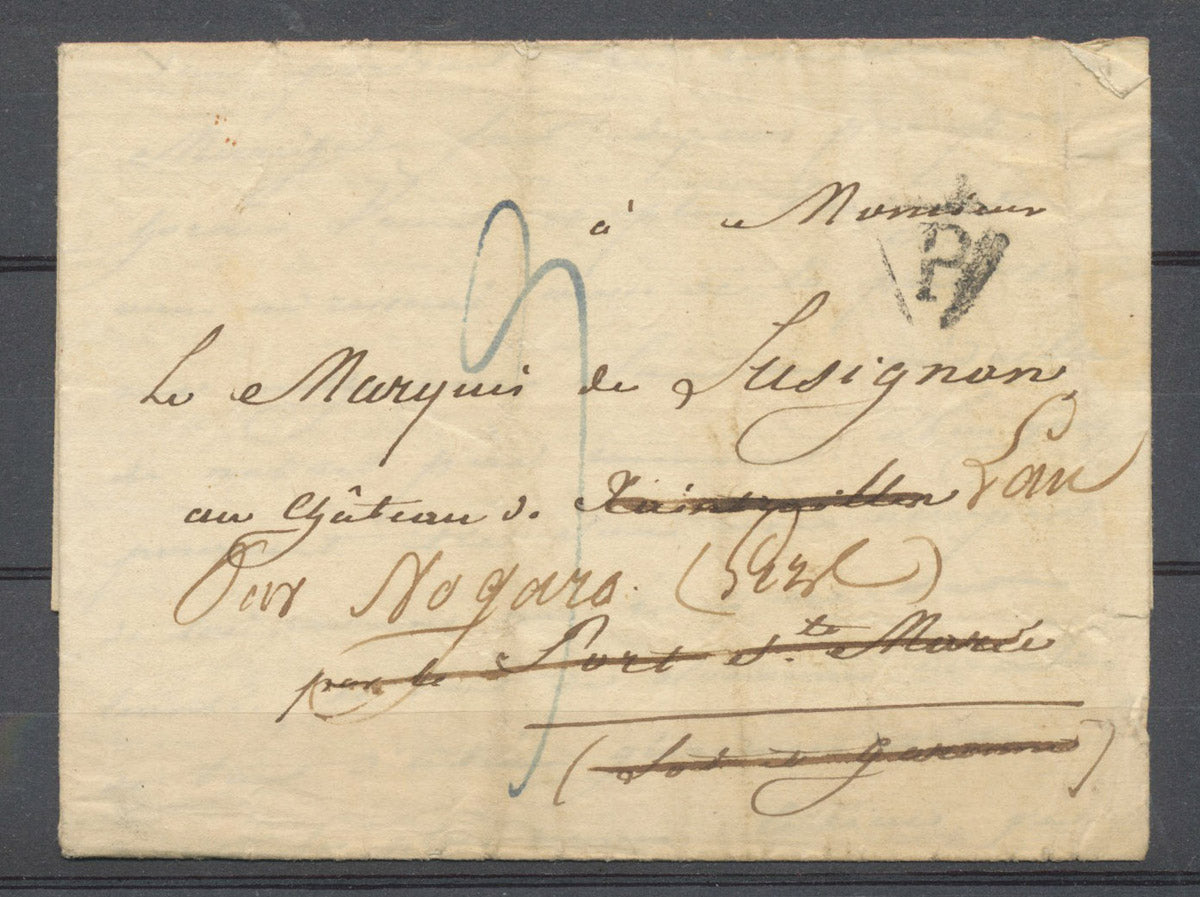 à Monsieur
P
Le Marquis de Lusignan
au Château de Xaintrailles Lau
par Nogaro (Gers)
par le Port Ste. Marie
(Lot et Garonne)